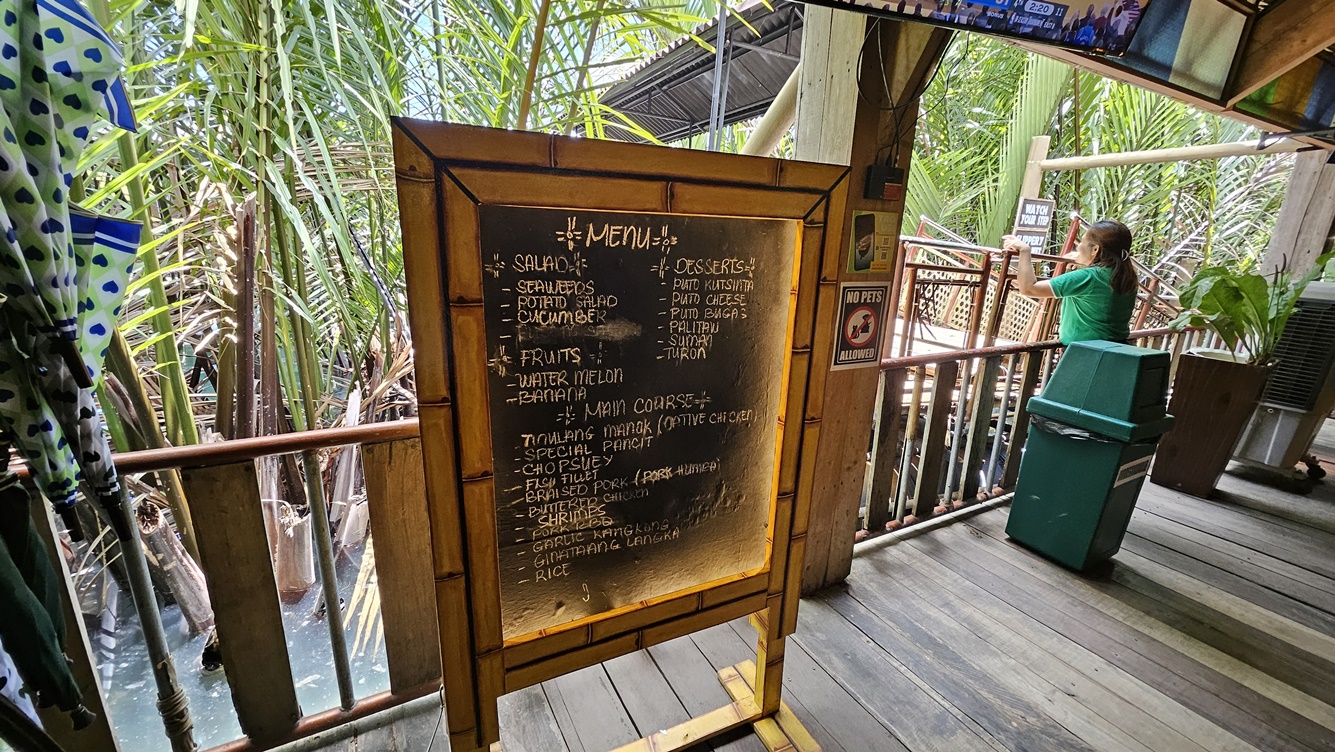 MENU
SALAD
- SEAWEEDS
- POTATO SALAD
- CUCUMBER
FRUITS
- WATER MELON
- BANANA
DESSERTS
- PUTO KUTSINTA
- PUTO CHEESE
- PUTO BUGAS
- PALITAW
- SUMAN
- TURON
MAIN COURSE
TINULANG MANOK (NATIVE CHICKEN)
- SPECIAL PANCIT
- CHOPSUEY
- FISH FILLET
- BRAISED PORK (PORK HUMBA)
- BUTTERED CHICKEN
- SHRIMPS
- PORK BBQ
- GARLIC KANGKONG
- GINATAANG LANGKA
- RICE
NO PETS
ALLOWED
WATCH
YOUR STEP
SLIPPERY
2:20